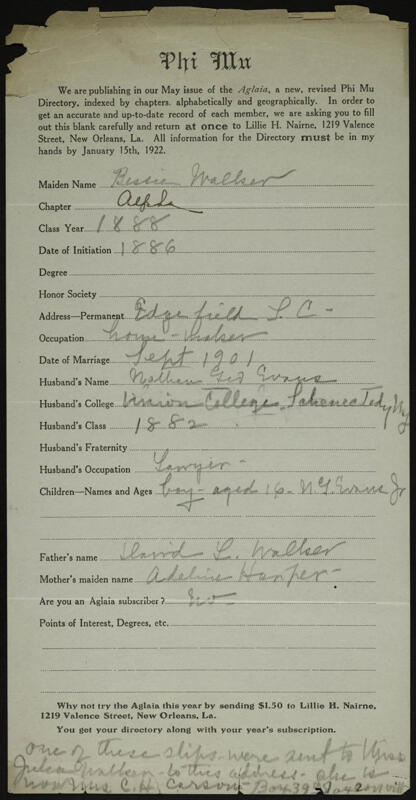 Phi Mu
We are publishing in our May issue of the Aglaia, a new, revised Phi Mu
Directory, indexed by chapters, alphabetically and geographically. In order to
get an accurate and up-to-date record of each member, we are asking you to fill
out this blank carefully and return at once to Lillie H. Nairne, 1219 Valence
Street, New Orleans, La. All information for the Directory must be in my
hands by January 15th, 1922.
Maiden Name Bessie Walker
Chapter Alpha
Class Year 1888
Date of Initiation 1886
Degree
Honor Society
Address—Permanent Edgefield S. C -
Occupation home-maker
Date of Marriage Sept 1901
Husband's Name Evans
Husband's College Union College, Schenectady Ny
Husband's Class 1882
Husband's Fraternity
Husband's Occupation Lawyer -
Children—Names and Ages boy - aged 16 - N. G. Evans Jr
Father's name David L. Walker
Mother's maiden name Adeline Harper -
Are you an Aglaia subscriber? No
Points of Interest, Degrees, etc.
Why not try the Aglaia this year by sending $1.50 to Lillie H. Nairne,
1219 Valence Street, New Orleans, La.
You get your directory along with your year's subscription.
one of these slips were sent to Miss
Julia Walker - to this address - she is
now Mrs C. H. Carson Box 39